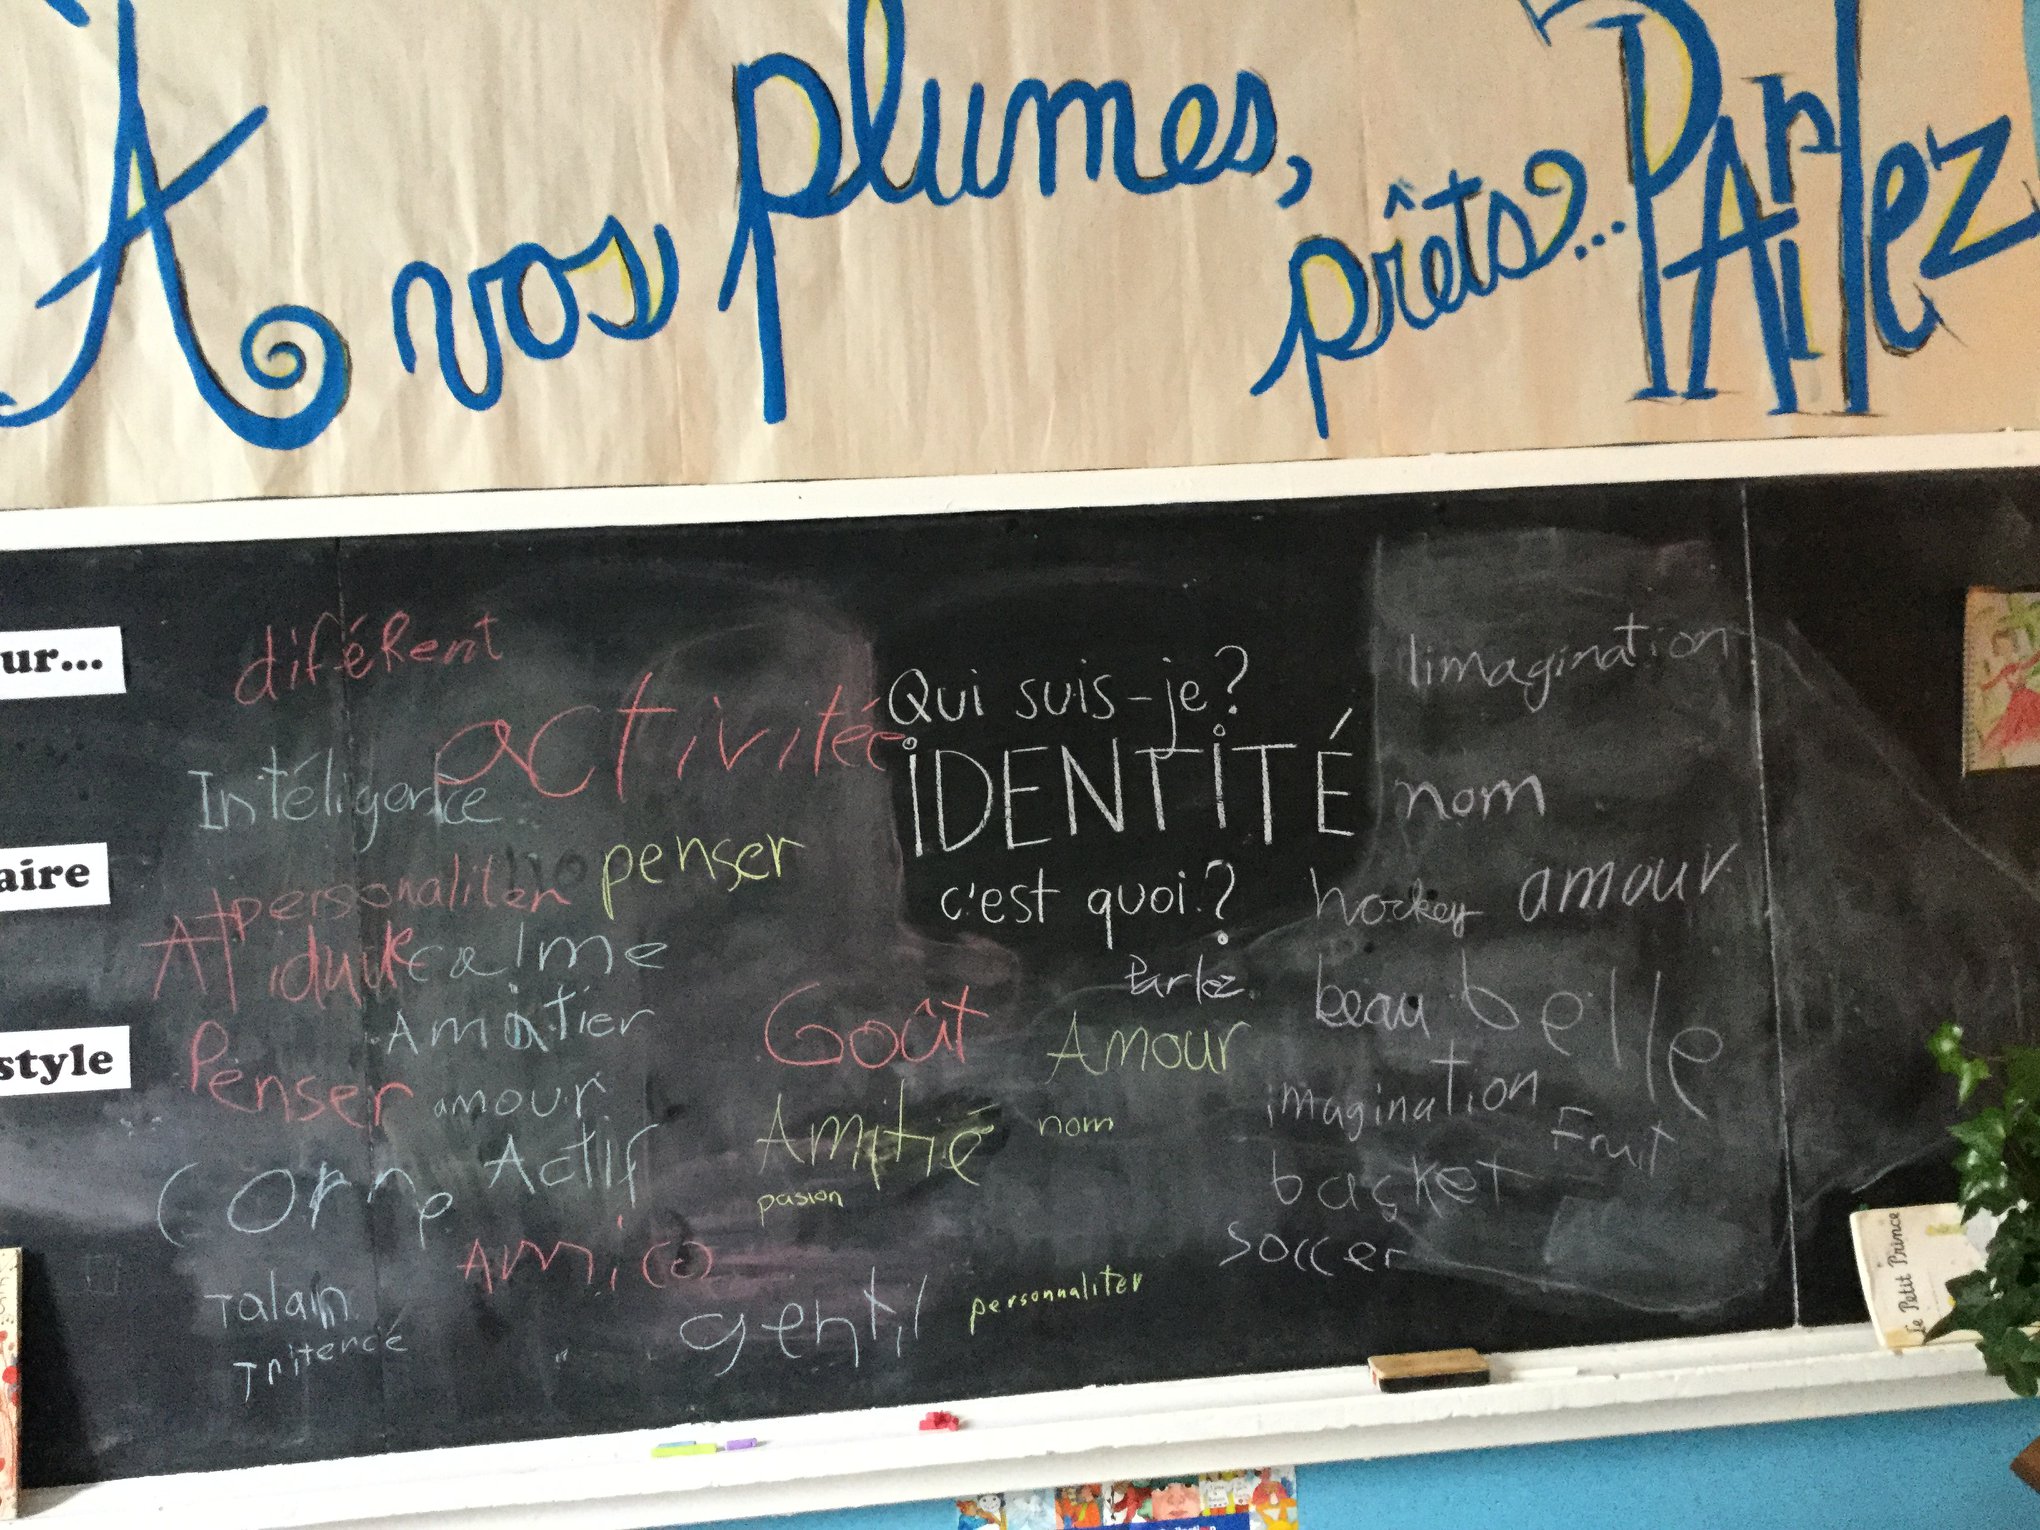 À vos plumes,
prêts... PARlez
ur...
aire
style
diférent
activitée
Intéligence
penser
personaliter
calme
Amitier
Penser
amour
Actif
Corp
Amico
Talain
gentil
personnaliter
Qui suis-je?
iDENTiTÉ
c'est quoi?
Parlez
Goût
Amour
Amitié
nom
pasion
limagination
nom
hockey amour
beau belle
imagination
Fruit
basket
soccer
Le Petit Prince